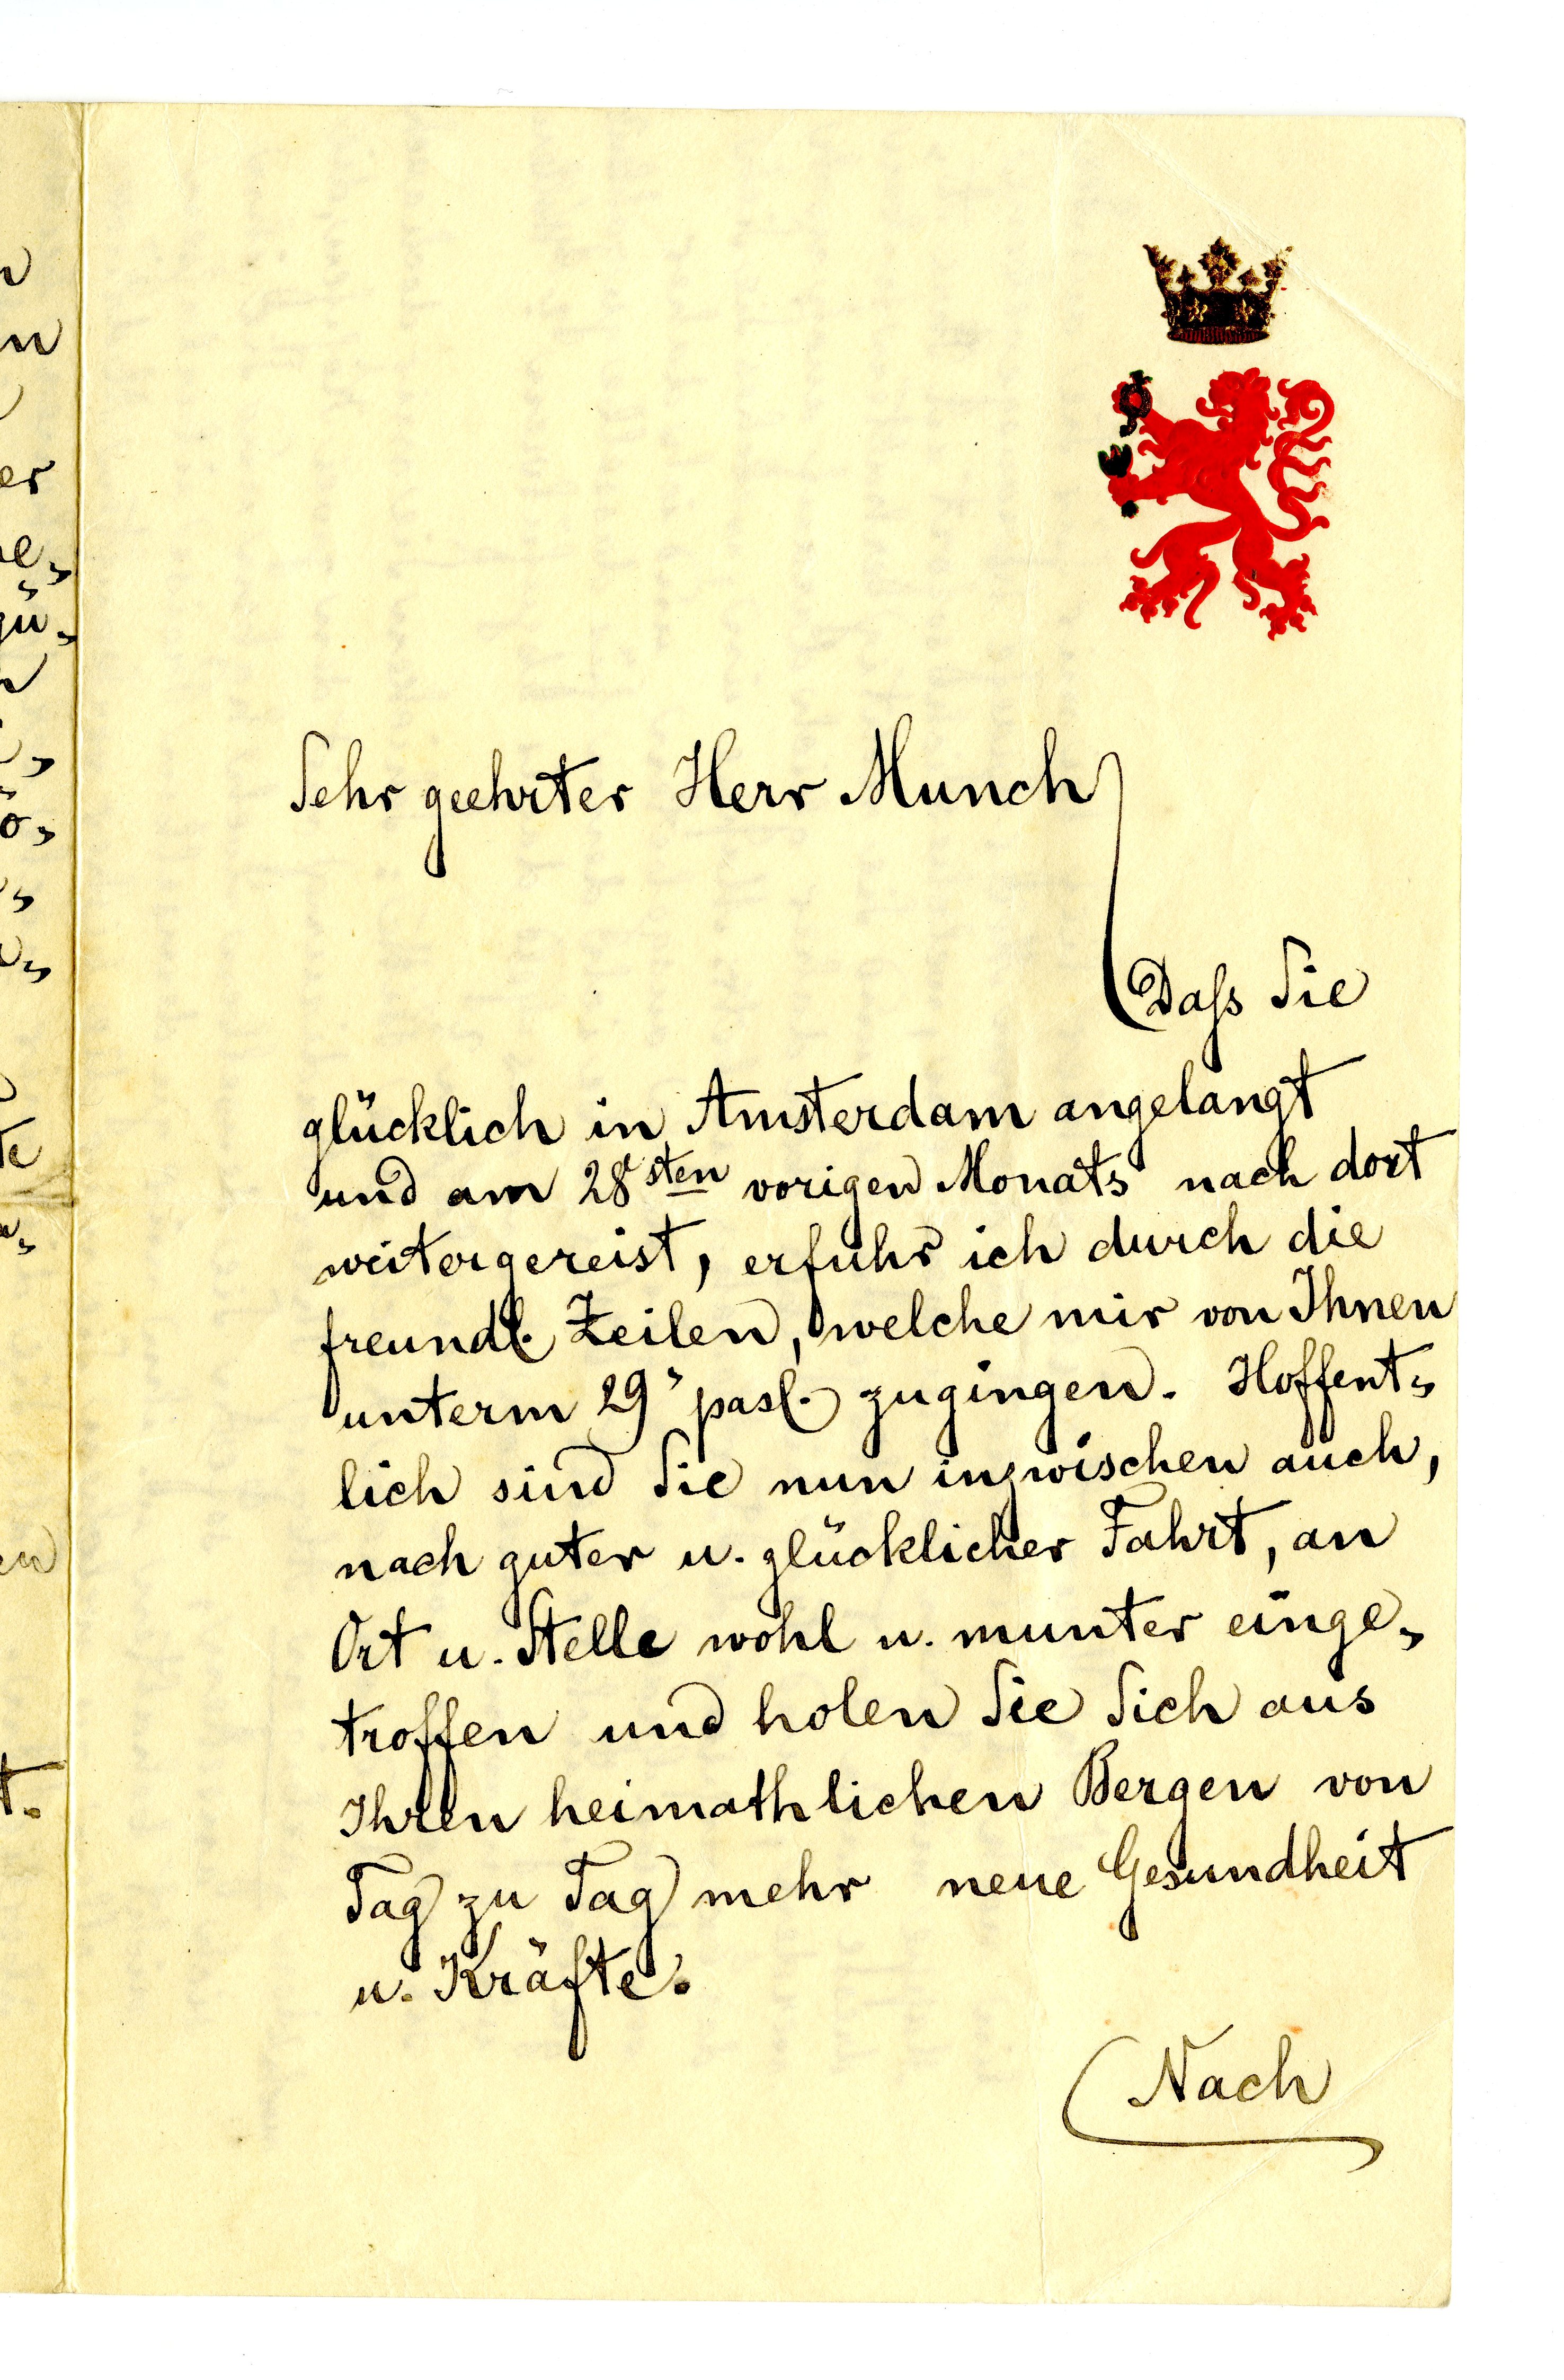 Sehr geehrter Herr Munch
Daſs Sie
glücklich in Amsterdam angelangt
und am 28sten vorigen Monats nach dort
weitergereist, erfuhr ich durch die
freundl. Zeilen, welche mir von Ihnen
unterm 29" pass. zugingen. Hoffent„
lich sind Sie nun inzwischen auch,
nach guter u. glücklicher Fahrt, an
Ort u. Stelle wohl u. munter einge„
troffen und holen Sie Sich aus
Ihren heimathlichen Bergen von
Tag zu Tag mehr neue Gesundheit
u. Kräfte.
Nach